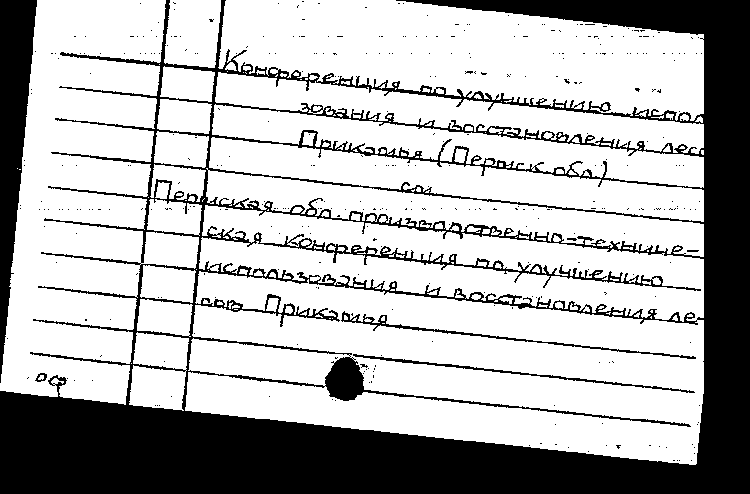 Конференция по улучшению испол
зования и восстановления лесо
Прикамья (Пермск. обл.)
см.
Пермская обл. производственно-техниче-
ская конференция по улучшению
использования и восстановления ле-
сов Прикамья
оср